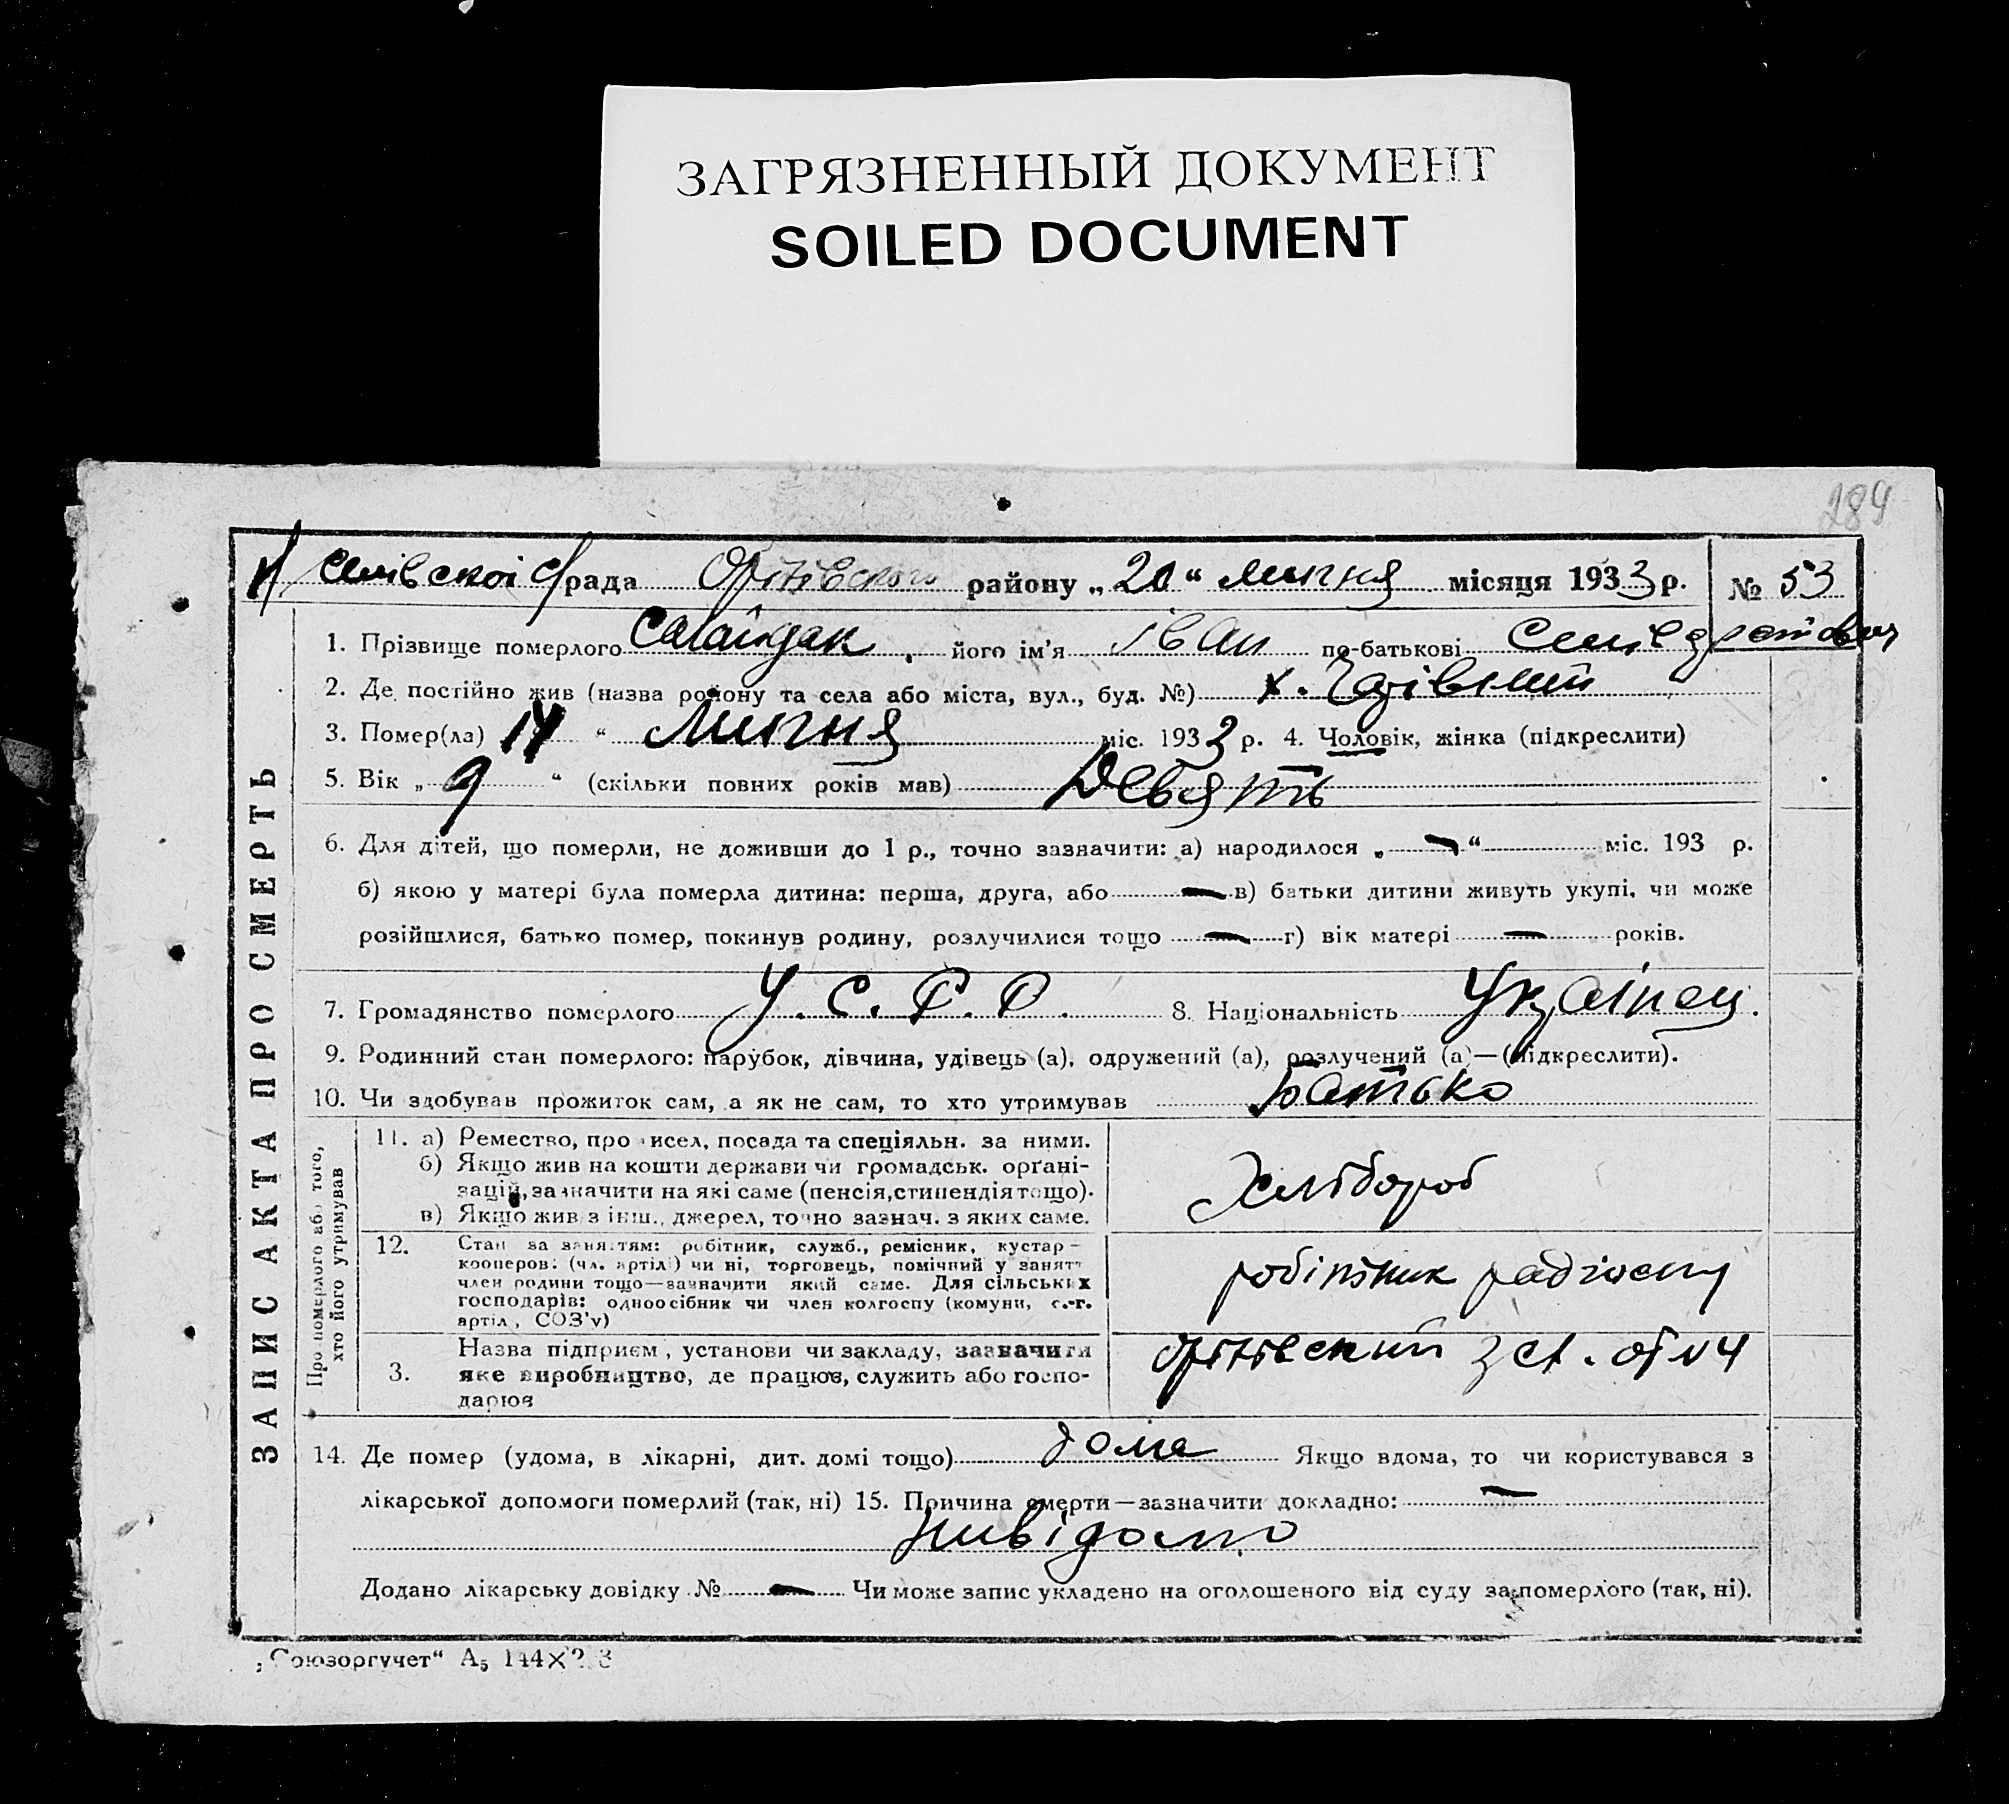 ЗАГРЯЗНЕННЫЙ ДОКУМЕНТ
SOILED DOCUMENT
284
рада районну „20“ липня місяця 1933 р. № 53
1. Прізвище померлого Сагайдак, його ім'я Іван по-батькові
2. Де постійно жив (назва району та села або міста, вул., буд. №) х.
3. Помер(ла) 14 “ Липня міс. 1933 р. 4. Чоловік, жінка (підкреслити)
5. Вік „ 9 “ (скільки повних років мав) Девять
6. Для дітей, що померли, не доживши до 1 р., точно зазначити: а) народилося „ — “ міс. 193 р.
б) якою у матері була померла дитина: перша, друга, або — в) батьки дитини живуть укупі, чи може
розійшлися, батько помер, покинув родину, розлучилися тощо — г) вік матері — років.
7. Громадянство померлого У. С. Р. Р. 8. Національність Українец.
9. Родинний стан померлого: парубок, дівчина, удівець (а), одружений (а), розлучений (а)—(підкреслити).
10. Чи здобував прожиток сам, а як не сам, то хто утримував Батько
Про померлого або того, хто його утримував
11. а) Ремество, про исел, посада та спеціяльн. за ними.
б) Якщо жив на кошти держави чи громадськ. орґані-
зацій, зазначити на які саме (пенсія, стипендія тощо).
в) Якщо жив з інш., джерел, точно зазнач. з яких саме.
Хлібороб
12. Стан за заняттям: робітник, служб., ремісник, кустар-
кооперов: (чл. артілі) чи ні, торговець, помічний у занятт
член родини тощо—зазначити який саме. Для сільських
господарів: одноосібник чи член колгоспу (комуни, с.-г.
артіл, СОЗ'у)
робітник
3. Назва підприєм, установи чи закладу, зазначити
яке виробництво, де працюв, служить або госпо-
дарюв
14. Де помер (удома, в лікарні, дит. домі тощо) дома Якщо вдома, то чи користувався з
лікарської допомоги померлий (так, ні) 15. Причина смерти—зазначити докладно: —
нивідомо
Додано лікарську довідку № — Чи може запис укладено на оголошеного від суду за померлого (так, ні).
ЗАПИС АКТА ПРО СМЕРТЬ
„Союзоргучет“ А₅ 144×2 3